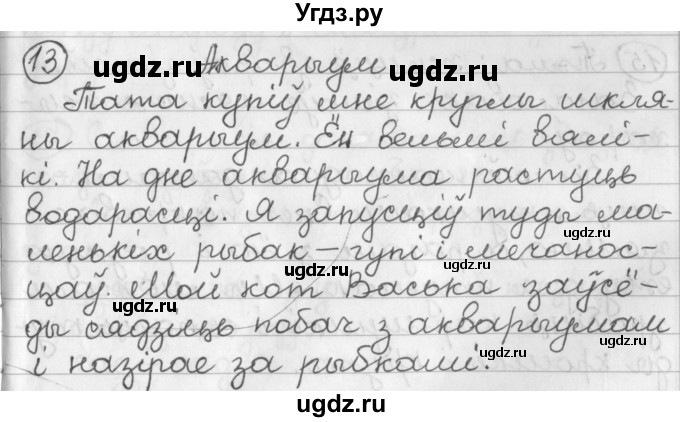 Угдз.ру
13 Акварыум
Тата купіў мне круглы шкля-
ны акварыум. Ён вельмі вялі-
кі. На дне акварыума растуць
водарасці. Я запусціў туды ма-
ленькіх рыбак – гупі і мечанос-
цаў. Мой кот Васька заўсё-
ды сядзіць побач з акварыумам
і назірае за рыбкамі.
ugdz.ru
ugdz.ru
ugdz.ru
ugdz.ru
ugdz.ru
ugdz.ru
ugdz.ru
ugdz.ru
ugdz.ru
ugdz.ru
ugdz.ru